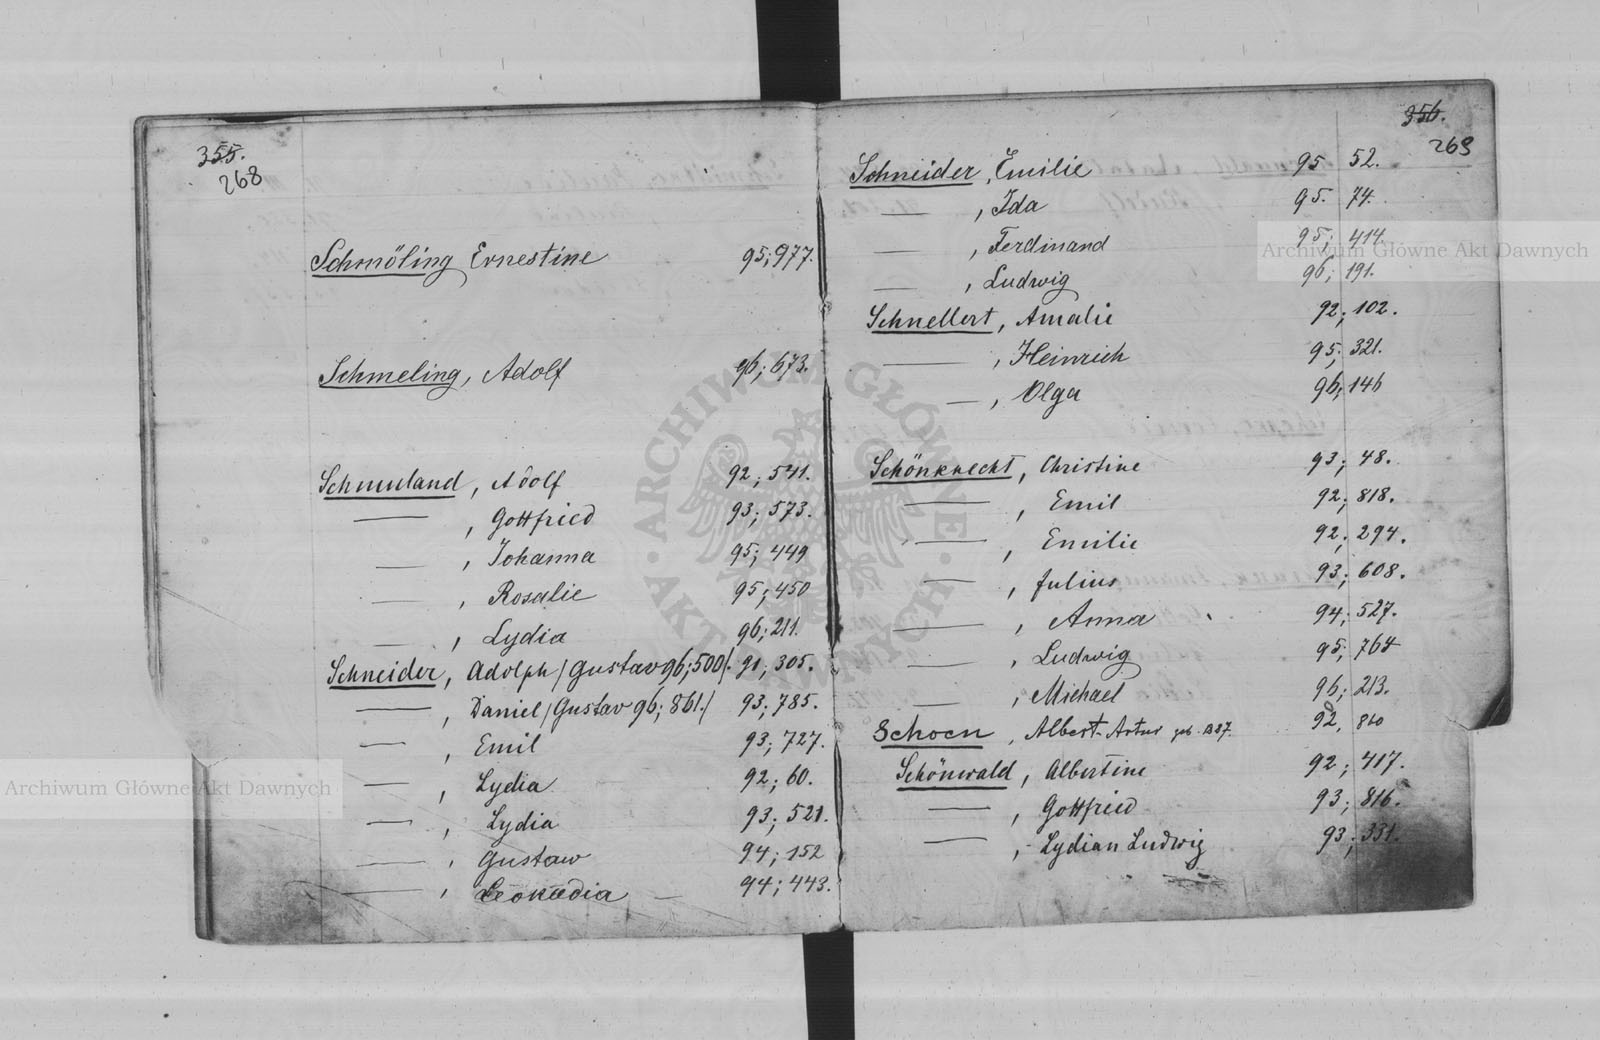 355.
268
Schmöling Ernestine 95; 977.
Schmeling, Adolf 96; 673.
Schmuland, Adolf 92; 541.
— , Gottfried 93; 573.
— , Johanna 95; 449
— , Rosalie 95; 450
— , Lydia 96; 211.
Schneider, Adolph / Gustav 96; 500/. 91; 305.
— , Daniel / Gustav 96; 861./ 93; 785.
— , Emil 93; 727.
— , Lydia 92; 60.
— , Lydia 93; 521.
— , Gustaw 94; 152
— , Leokadia — 94; 443.
356.
269
Schneider, Emilie 95 52.
— , Ida 95. 74.
— , Ferdinand 95; 414.
— , Ludwig 96; 191.
Schnellert, Amalie 92; 102.
— , Heinrich 95; 321.
— , Olga 96; 146
Schönknecht, Christine 93; 48.
— , Emil 92; 818.
— , Emilie 92; 294.
— , Julius 93; 608.
— , Anna 94; 527.
— , Ludwig 95; 764
— , Michael 96; 213.
Schoen, Albert-Artur 92, 810
Schönwald, Albertine 92; 417.
— , Gottfried 93; 816.
— , Lydian Ludwig 93; 331.
Archiwum Główne Akt Dawnych
Archiwum Główne Akt Dawnych
· ARCHIWUM GŁÓWNE · AKT DAWNYCH